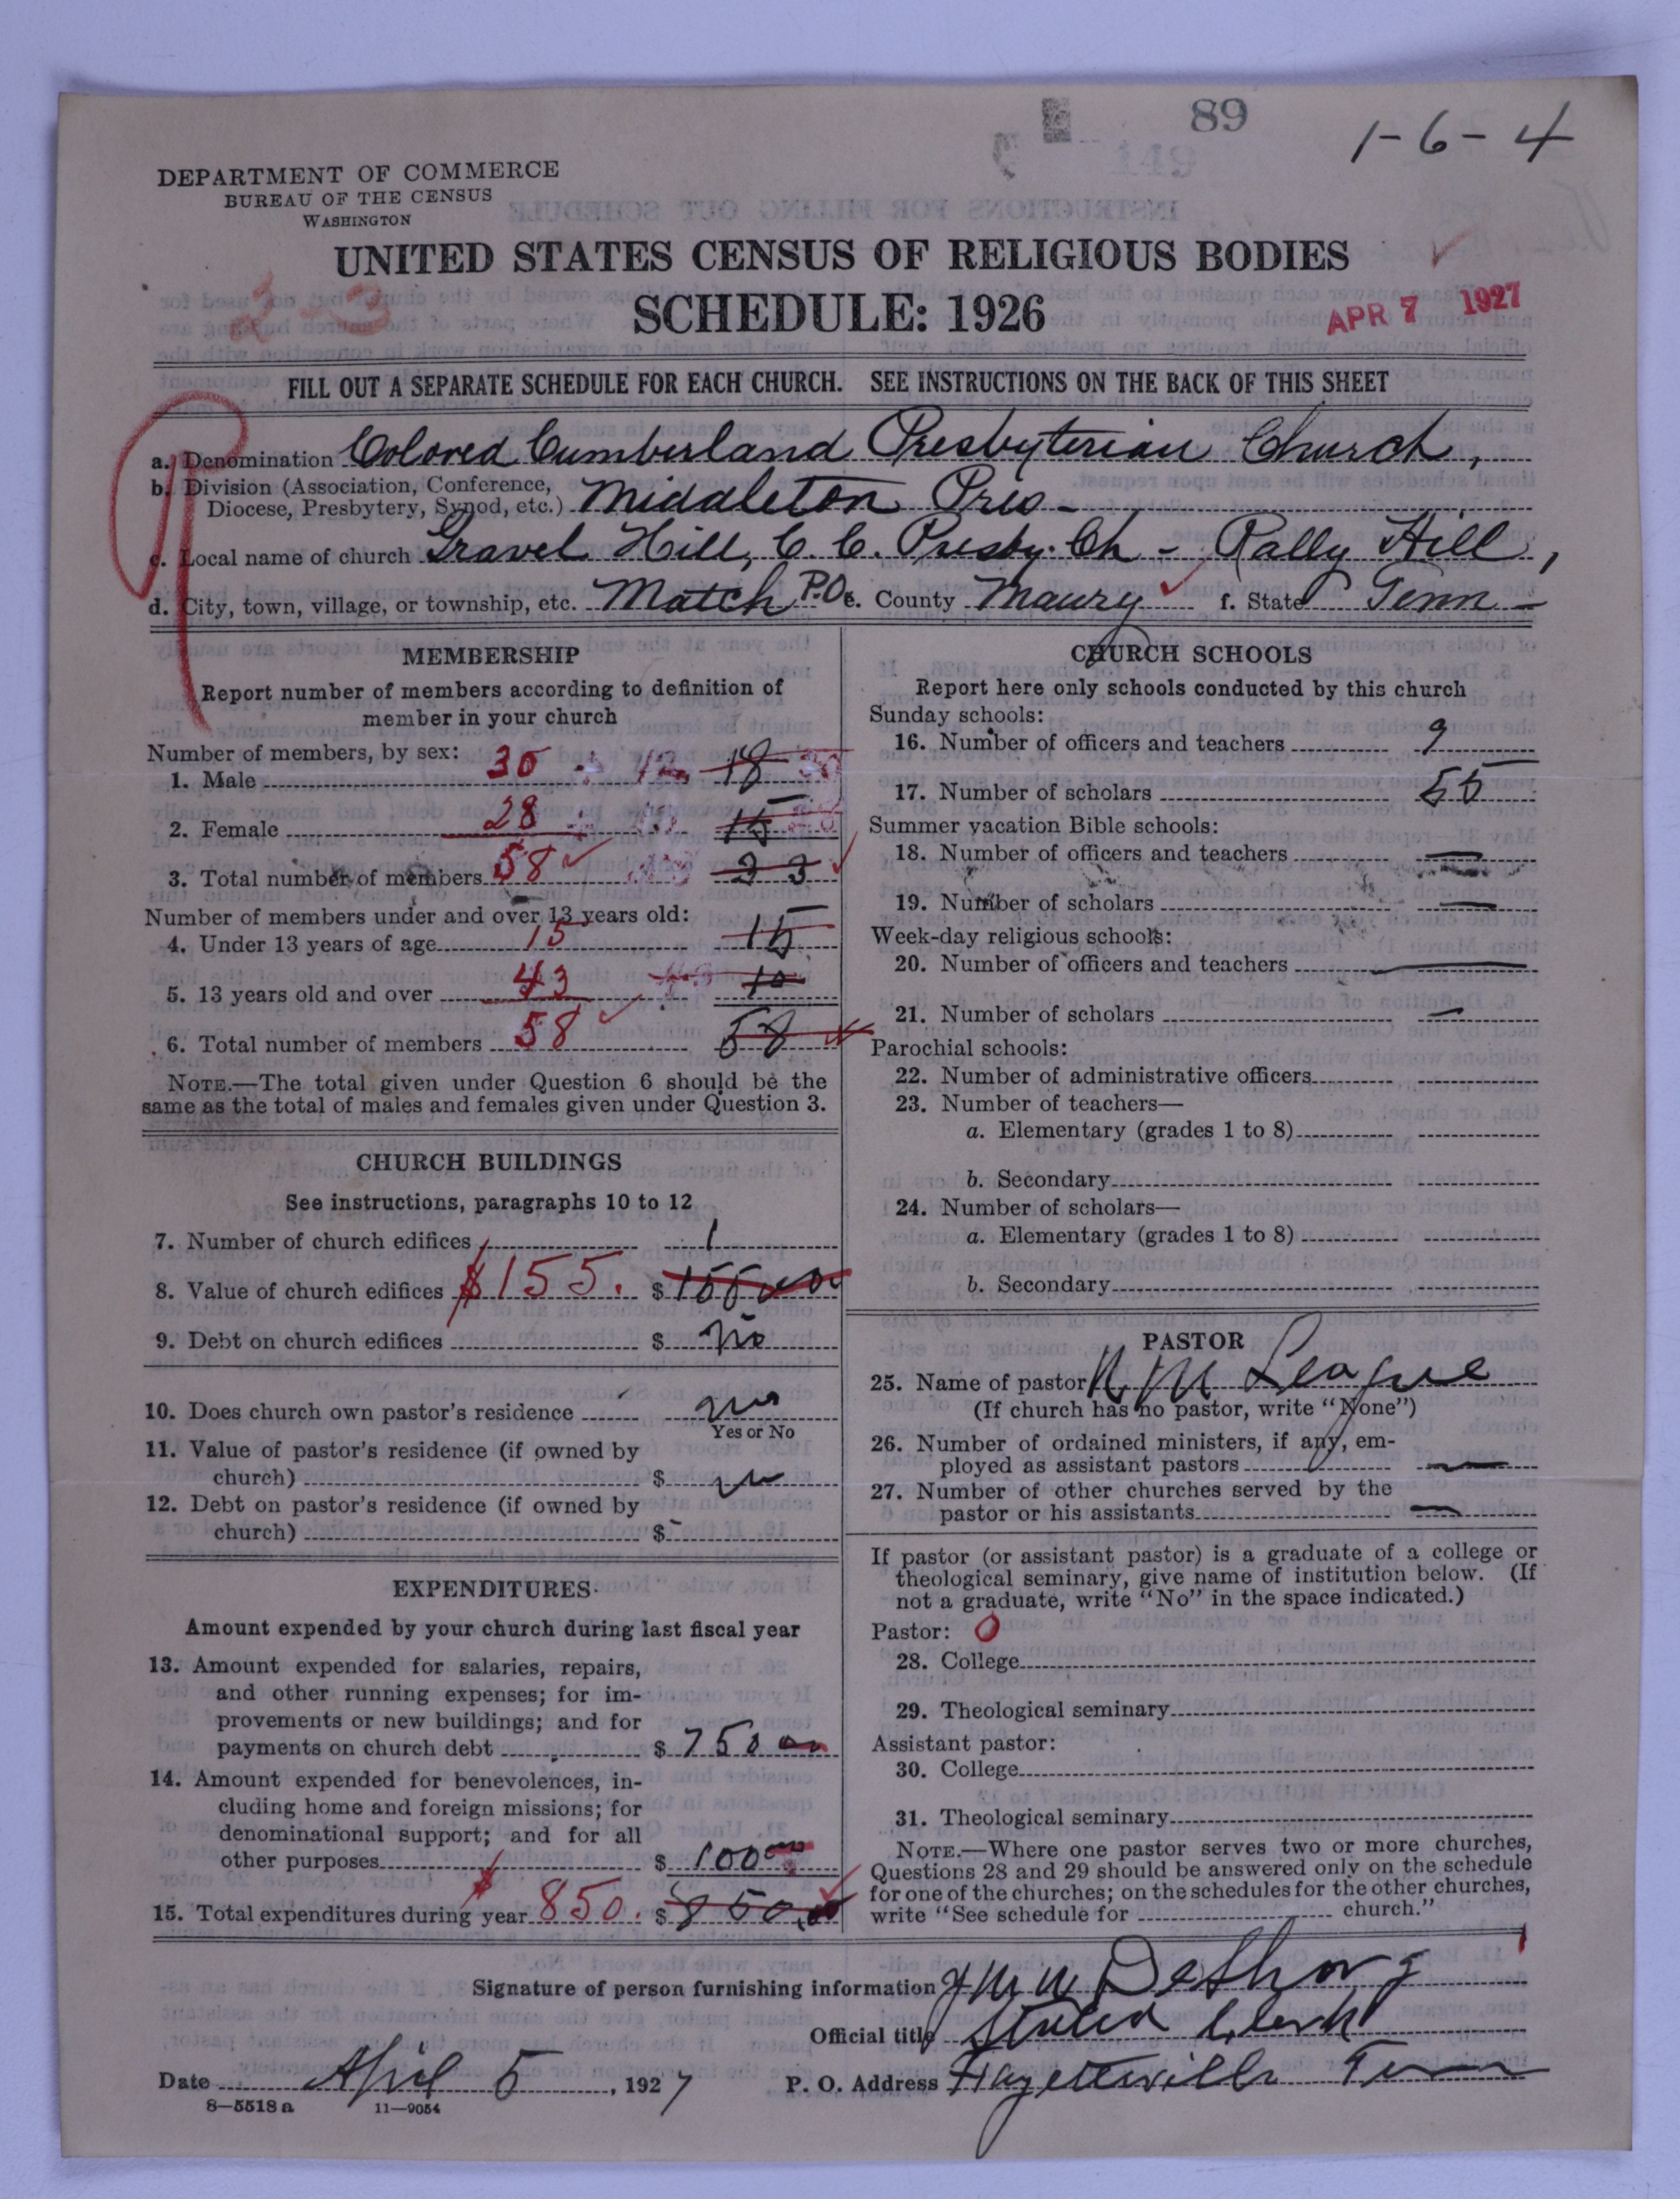 89
1-6-4
DEPARTMENT OF COMMERCE
BUREAU OF THE CENSUS
WASHINGTON
UNITED STATES CENSUS OF RELIGIOUS BODIES
SCHEDULE: 1926
2-3
APR 7 1927
FILL OUT A SEPARATE SCHEDULE FOR EACH CHURCH. SEE INSTRUCTIONS ON THE BACK OF THIS SHEET
a. Denomination Colored Cumberland Presbyterian Church,
b. Division (Association, Conference,
Diocese, Presbytery, Synod, etc.) Middleton Pres-
c. Local name of church Gravel Hill, C. C. Presby. Ch - Rally Hill,
d. City, town, village, or township, etc. Match P.O. e. County Maury f. State Tenn-
MEMBERSHIP
Report number of members according to definition of
member in your church
Number of members, by sex:
1. Male 30 18
2. Female 28 15
3. Total number of members 58 33
Number of members under and over 13 years old:
4. Under 13 years of age 15 15
5. 13 years old and over 43 10
6. Total number of members 58 58
NOTE.—The total given under Question 6 should be the
same as the total of males and females given under Question 3.
CHURCH BUILDINGS
See instructions, paragraphs 10 to 12
7. Number of church edifices 1
8. Value of church edifices $155. $155.00
9. Debt on church edifices $ no
10. Does church own pastor's residence no
Yes or No
11. Value of pastor's residence (if owned by
church) $
12. Debt on pastor's residence (if owned by
church) $-
EXPENDITURES
Amount expended by your church during last fiscal year
13. Amount expended for salaries, repairs,
and other running expenses; for im-
provements or new buildings; and for
payments on church debt $ 750 00
14. Amount expended for benevolences, in-
cluding home and foreign missions; for
denominational support; and for all
other purposes $ 100 00
15. Total expenditures during year $850. $850.00
CHURCH SCHOOLS
Report here only schools conducted by this church
Sunday schools:
16. Number of officers and teachers 9
17. Number of scholars 55
Summer vacation Bible schools:
18. Number of officers and teachers —
19. Number of scholars —
Week-day religious schools:
20. Number of officers and teachers —
21. Number of scholars —
Parochial schools:
22. Number of administrative officers
23. Number of teachers—
a. Elementary (grades 1 to 8)
b. Secondary
24. Number of scholars—
a. Elementary (grades 1 to 8)
b. Secondary
PASTOR
25. Name of pastor M League
(If church has no pastor, write "None")
26. Number of ordained ministers, if any, em-
ployed as assistant pastors —
27. Number of other churches served by the
pastor or his assistants —
If pastor (or assistant pastor) is a graduate of a college or
theological seminary, give name of institution below. (If
not a graduate, write "No" in the space indicated.)
Pastor: 0
28. College
29. Theological seminary
Assistant pastor:
30. College
31. Theological seminary
NOTE.—Where one pastor serves two or more churches,
Questions 28 and 29 should be answered only on the schedule
for one of the churches; on the schedules for the other churches,
write "See schedule for church."
Signature of person furnishing information DeShong
Official title Stated Clerk
Date April 5, 1927 P. O. Address Fayetteville Tenn
8—5518a 11—9054